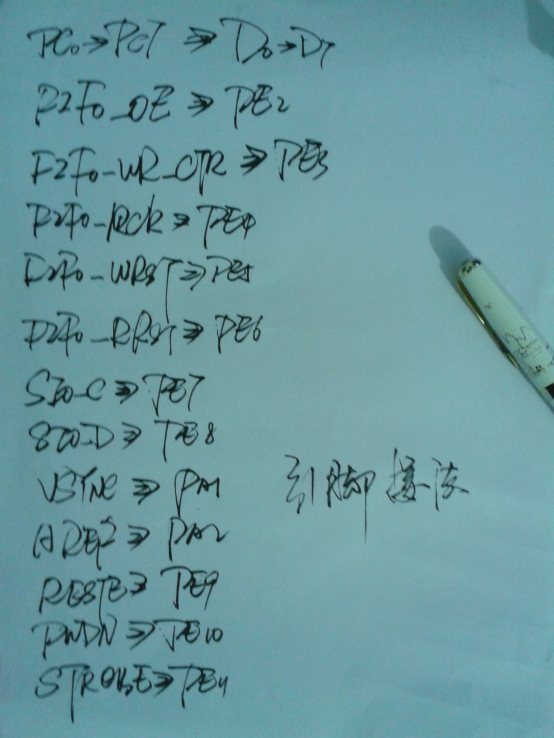 PC0→PC7 ⇒ D0→D7
FIFO_OE ⇒ PE2
FIFO_WR_CTR ⇒ PE3
FIFO_RCK ⇒ PE4
FIFO_WRST ⇒ PE5
FIFO_RRST ⇒ PE6
SIO_C ⇒ PE7
SIO_D ⇒ PE8
VSYNC ⇒ PA1
引脚接法
HREF ⇒ PA2
RESTE ⇒ PE9
PWDN ⇒ PE10
STROBE ⇒ PE11